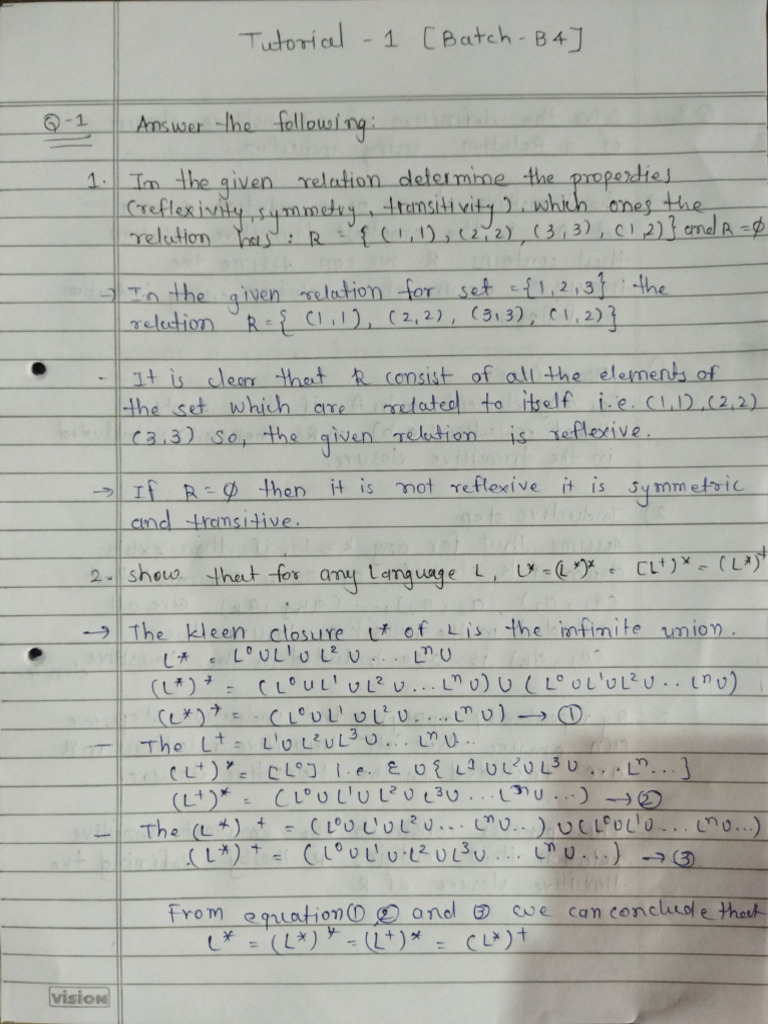 Tutorial - 1 [Batch - B4]
Q-1 Answer the following:
1. In the given relation determine the properties
(reflexivity, symmetry, transitivity), which ones the
relation has: R = { (1,1), (2,2), (3,3), (1,2)} and R = ∅
→ In the given relation for set = {1,2,3} the
relation R = { (1,1), (2,2), (3,3), (1,2)}
- It is clear that R consist of all the elements of
the set which are related to itself i.e. (1,1), (2,2)
(3,3) so, the given relation is reflexive.
→ If R = ∅ then it is not reflexive it is symmetric
and transitive.
2. show that for any Language L, L* = (L*)* = (L+)* = (L*)+
→ The kleen closure L* of L is the infinite union.
L* = L⁰ ∪ L¹ ∪ L² ∪ ... Lⁿ ∪
(L*)* = (L⁰ ∪ L¹ ∪ L² ∪ ... Lⁿ ∪) ∪ (L⁰ ∪ L¹ ∪ L² ∪ .. Lⁿ ∪)
(L*)* = (L⁰ ∪ L¹ ∪ L² ∪ .... Lⁿ ∪) → ①
- The L+ = L¹ ∪ L² ∪ L³ ∪ ... Lⁿ ∪..
(L+)* = [L⁰] i.e. ε ∪ { L¹ ∪ L² ∪ L³ ∪ ... Lⁿ...]
(L+)* = (L⁰ ∪ L¹ ∪ L² ∪ L³ ∪ ... Lⁿ ∪ ...) → ②
- The (L*)+ = (L⁰ ∪ L¹ ∪ L² ∪ ... Lⁿ ∪..) ∪ (L⁰ ∪ L¹ ∪ ... Lⁿ ∪...)
(L*)+ = (L⁰ ∪ L¹ ∪ L² ∪ L³ ∪ ... Lⁿ ∪ ...) → ③
From equation ① ② and ③ we can conclude that
L* = (L*)* = (L+)* = (L*)+
vision